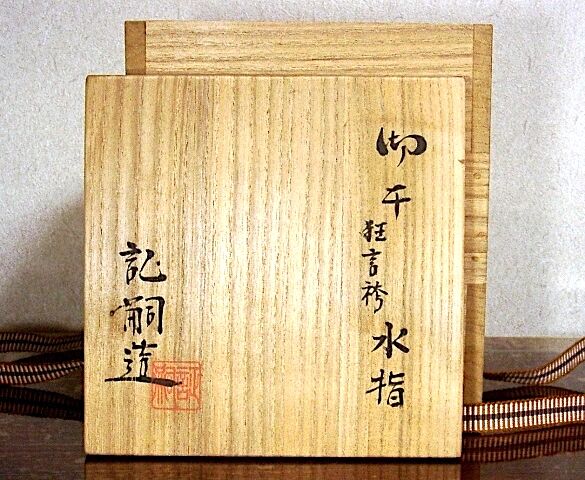 御本
狂言袴
水指
記嗣造